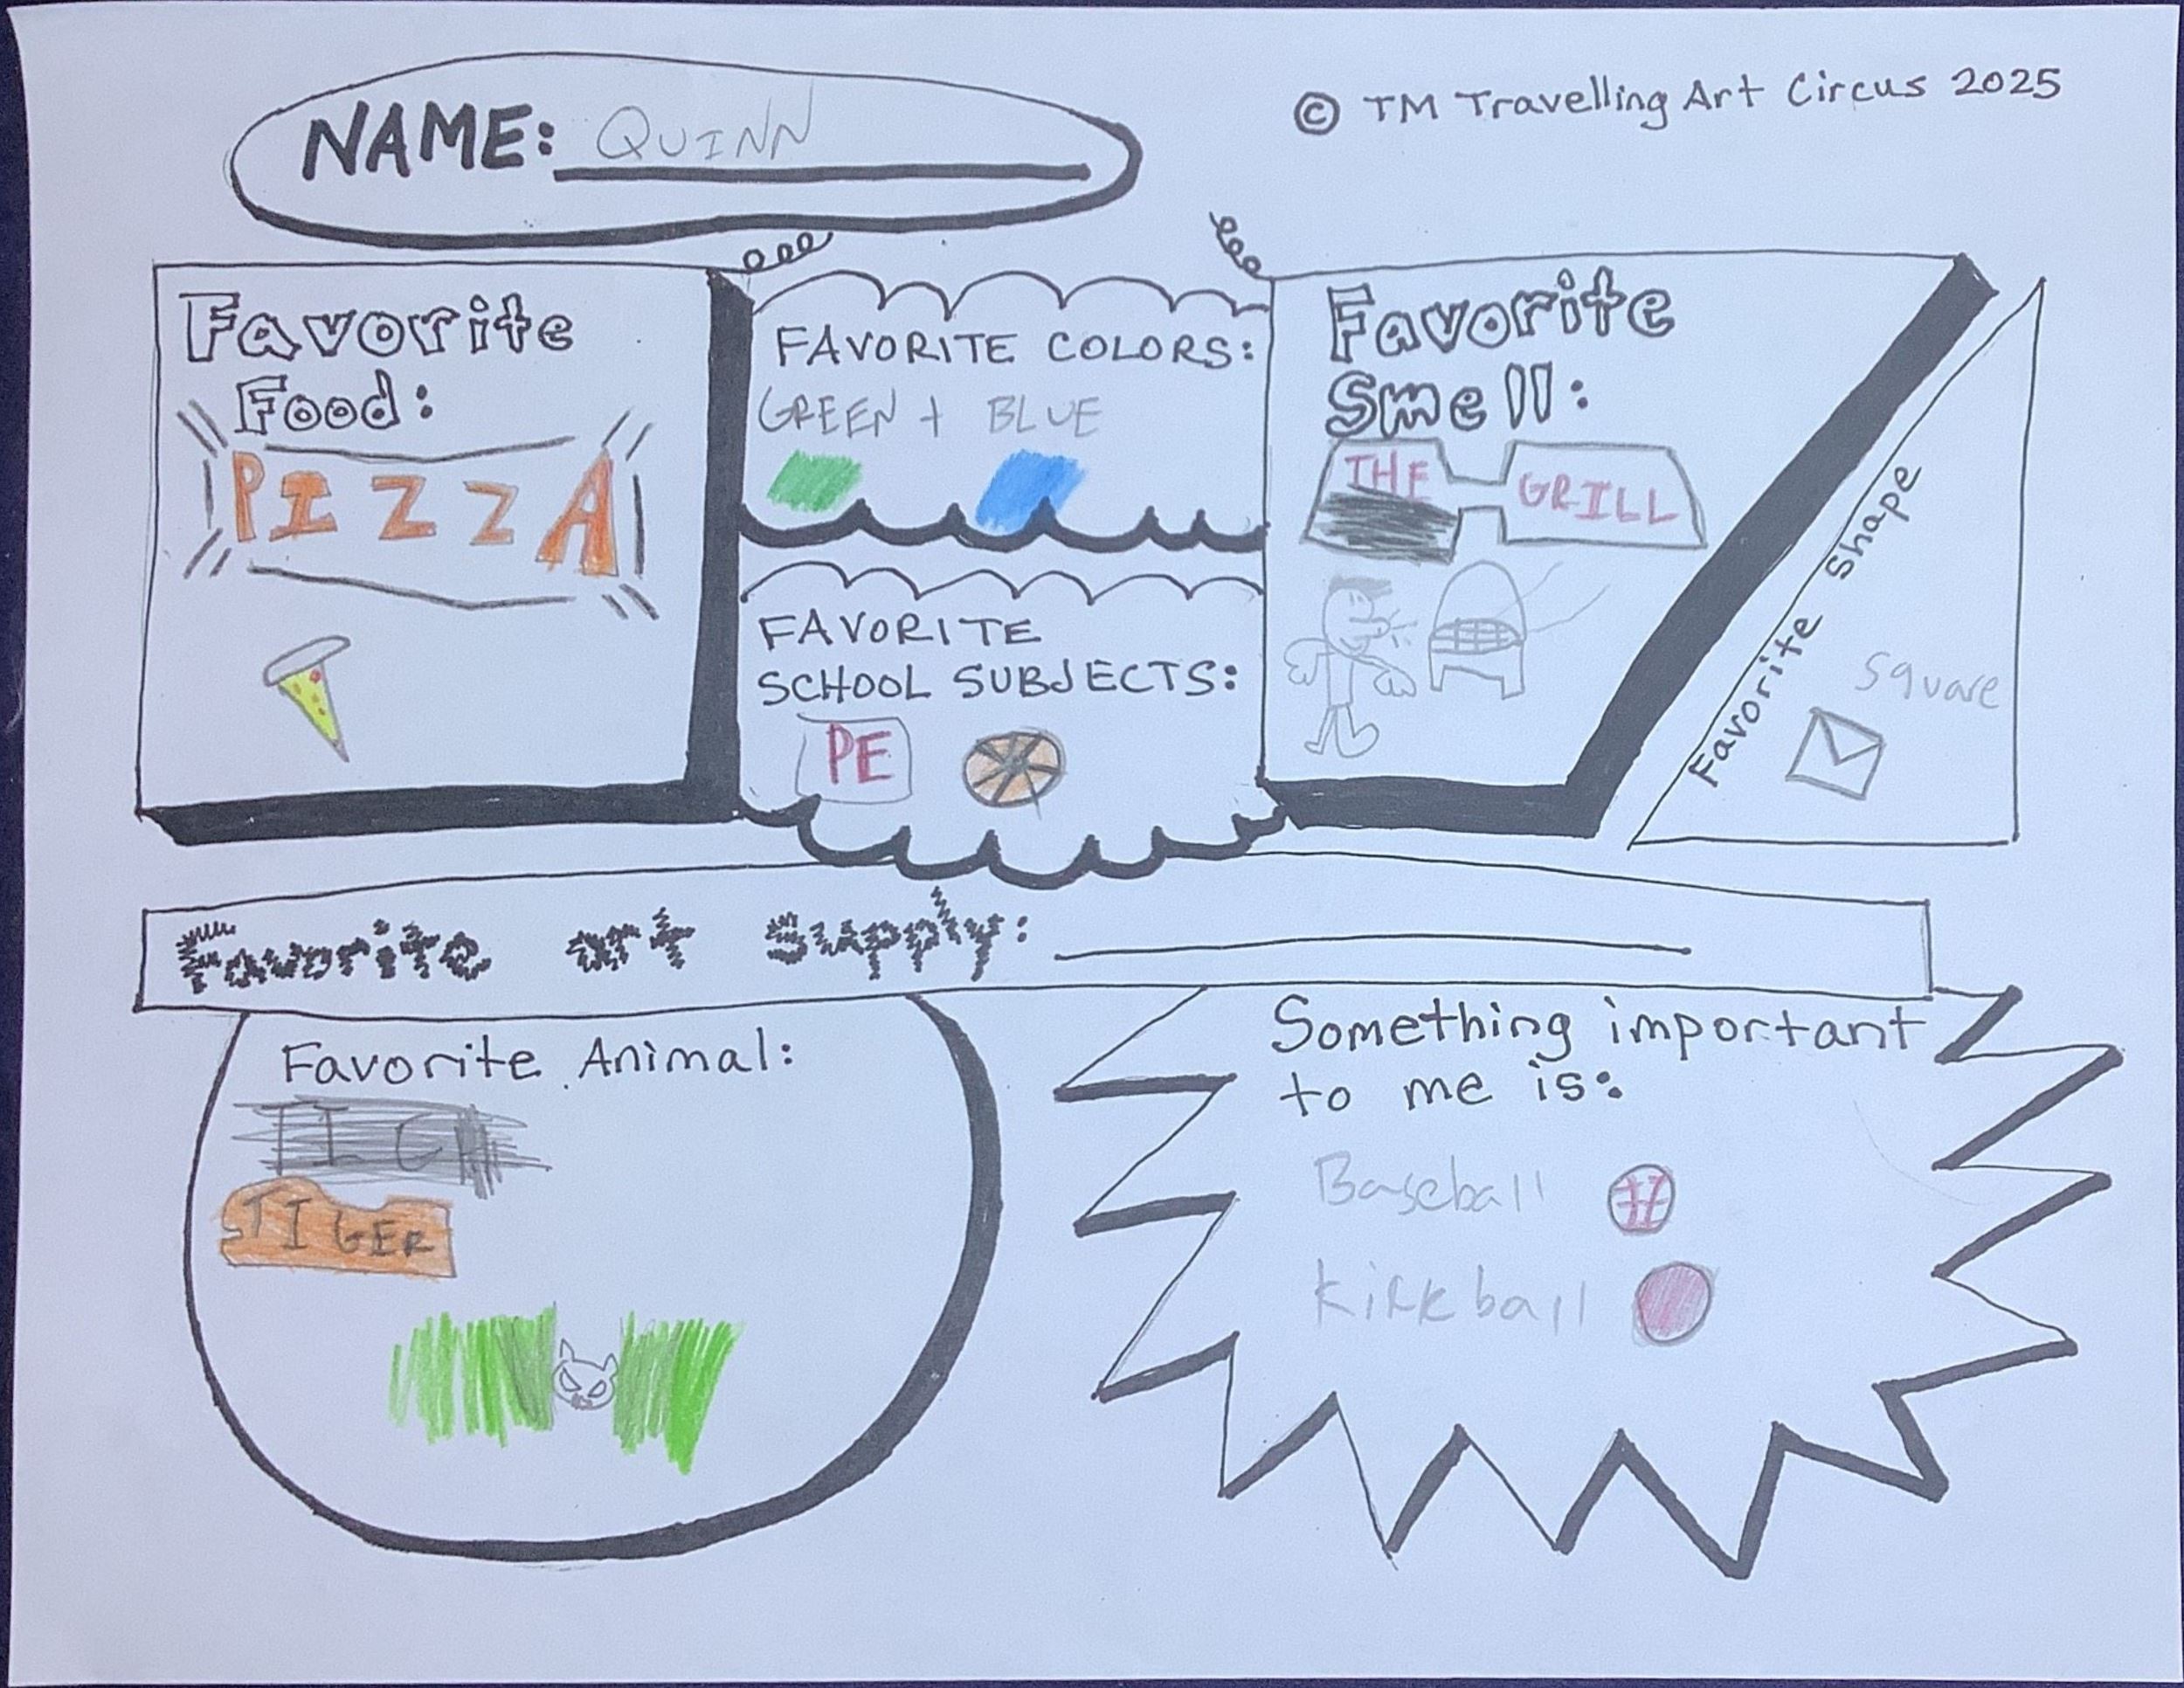 NAME: QUINN
© TM Travelling Art Circus 2025
Favorite
Food:
PIZZA
FAVORITE COLORS:
GREEN + BLUE
FAVORITE
SCHOOL SUBJECTS:
PE
Favorite
Smell:
THE GRILL
Favorite Shape
Square
Favorite art Supply:
Favorite Animal:
TIGER
Something important
to me is:
Baseball
kickball